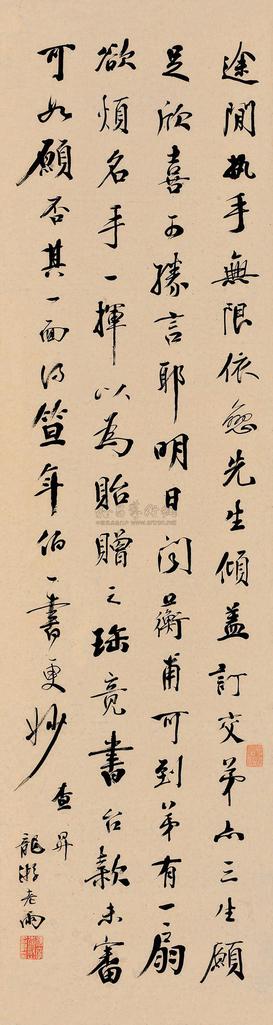 途間執手無限依戀先生傾蓋訂交弟亦三生願
足欣喜可勝言耶明日閱蘅甫可到弟有一扇
欲煩名手一揮以為貽贈之珍竟書台款未審
可如願否其一面得笪年伯一書更妙
查昇
龍游老雨